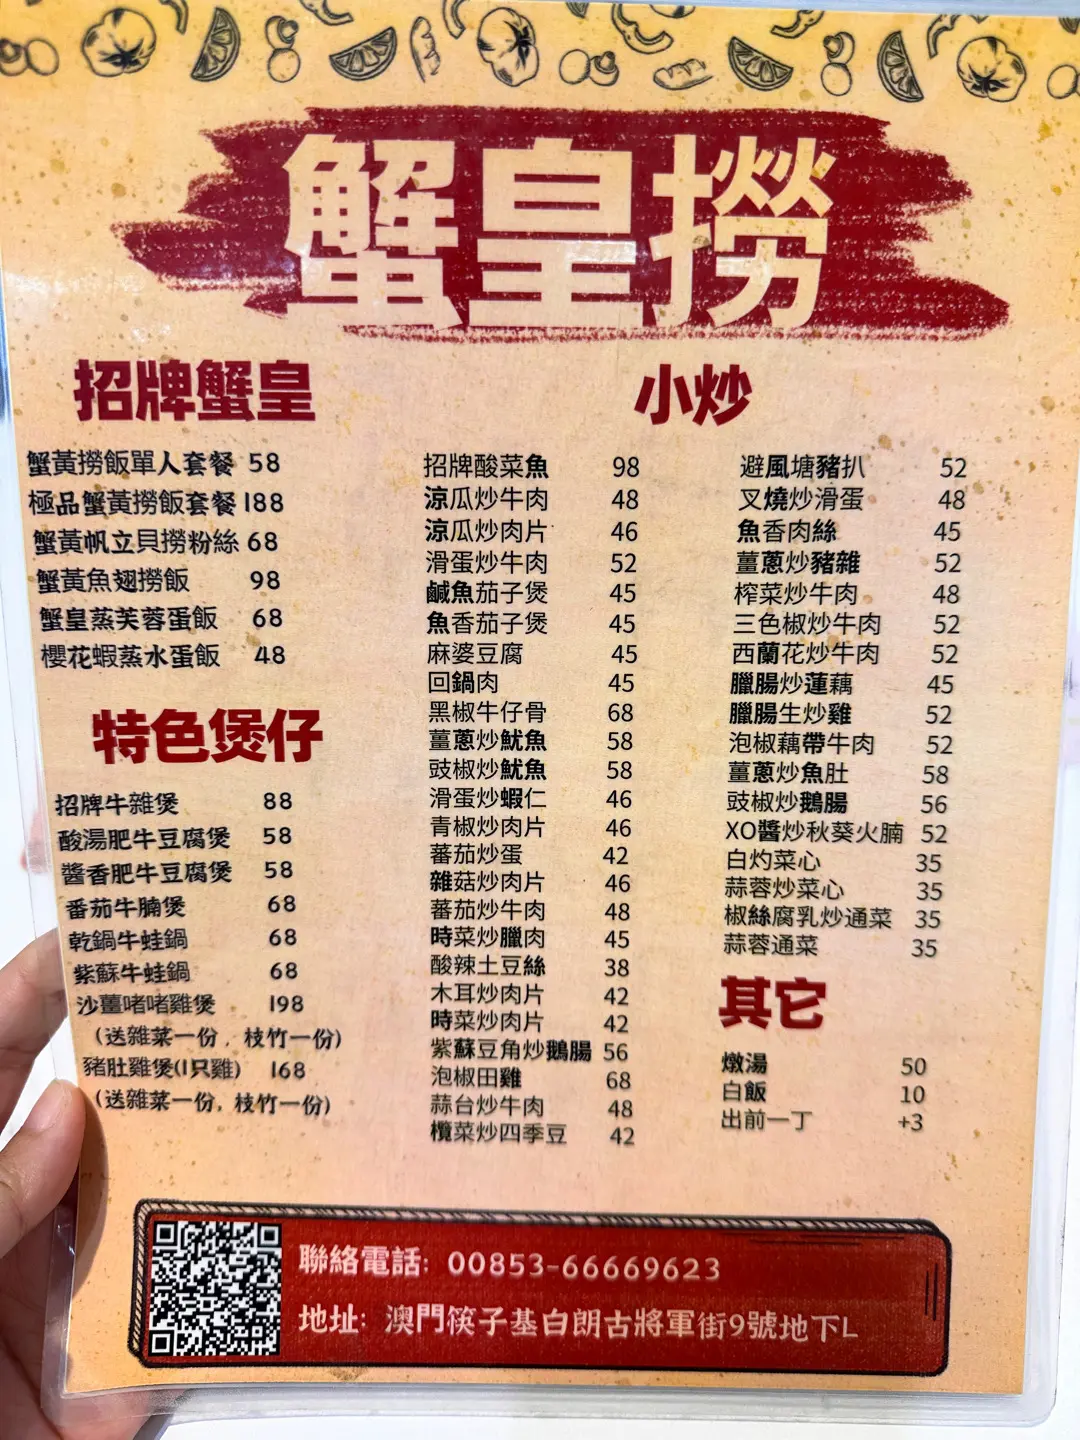 蟹皇撈
招牌蟹皇
蟹黃撈飯單人套餐 58
極品蟹黃撈飯套餐 188
蟹黃帆立貝撈粉絲 68
蟹黃魚翅撈飯 98
蟹皇蒸芙蓉蛋飯 68
櫻花蝦蒸水蛋飯 48
特色煲仔
招牌牛雜煲 88
酸湯肥牛豆腐煲 58
醬香肥牛豆腐煲 58
番茄牛腩煲 68
乾鍋牛蛙鍋 68
紫蘇牛蛙鍋 68
沙薑啫啫雞煲 198
(送雜菜一份, 枝竹一份)
豬肚雞煲(1只雞) 168
(送雜菜一份, 枝竹一份)
小炒
招牌酸菜魚 98
涼瓜炒牛肉 48
涼瓜炒肉片 46
滑蛋炒牛肉 52
鹹魚茄子煲 45
魚香茄子煲 45
麻婆豆腐 45
回鍋肉 45
黑椒牛仔骨 68
薑蔥炒魷魚 58
豉椒炒魷魚 58
滑蛋炒蝦仁 46
青椒炒肉片 46
蕃茄炒蛋 42
雜菇炒肉片 46
蕃茄炒牛肉 48
時菜炒臘肉 45
酸辣土豆絲 38
木耳炒肉片 42
時菜炒肉片 42
紫蘇豆角炒鵝腸 56
泡椒田雞 68
蒜台炒牛肉 48
欖菜炒四季豆 42
避風塘豬扒 52
叉燒炒滑蛋 48
魚香肉絲 45
薑蔥炒豬雜 52
榨菜炒牛肉 48
三色椒炒牛肉 52
西蘭花炒牛肉 52
臘腸炒蓮藕 45
臘腸生炒雞 52
泡椒藕帶牛肉 52
薑蔥炒魚肚 58
豉椒炒鵝腸 56
XO醬炒秋葵火腩 52
白灼菜心 35
蒜蓉炒菜心 35
椒絲腐乳炒通菜 35
蒜蓉通菜 35
其它
燉湯 50
白飯 10
出前一丁 +3
聯絡電話: 00853-66669623
地址: 澳門筷子基白朗古將軍街9號地下L